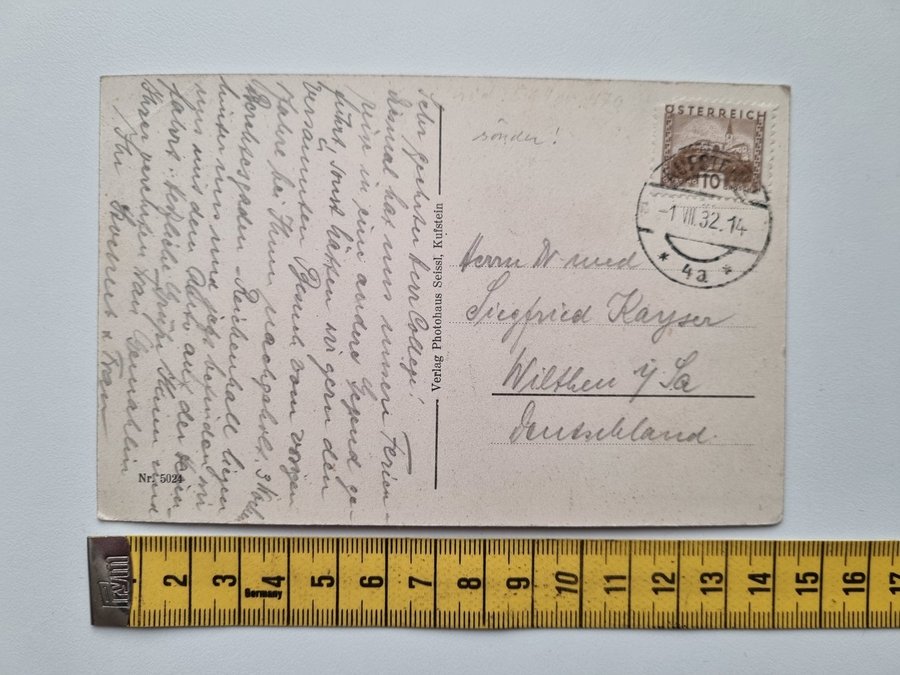 Sehr geehrter Herr College!
Diesmal hat uns unsere Ferien-
reise in eine andere Gegend ge-
führt, sonst hätten wir gern den
versäumten Besuch vom vorigen
Jahre bei Ihnen nachgeholt. 3
Berchtesgaden Reichenhall liegen
hinter uns und jetzt befinden wir
uns mit dem Auto auf der Heim
fahrt. Herzliche Grüße Ihnen und
Ihrer verehrten Frau Gemahlin
Ihr u. Frau
Nr. 5024
Verlag Photohaus Seissl, Kufstein
sonder!
ÖSTERREICH
10
KUFSTEIN
-1 VII. 32. 14
* 4a *
Herrn Dr med
Siegfried Kayser
Wilthen i/Sa
Deutschland.
2 3 4 5 6 7 8 9 10 11 12 13 14 15 16 17
Germany